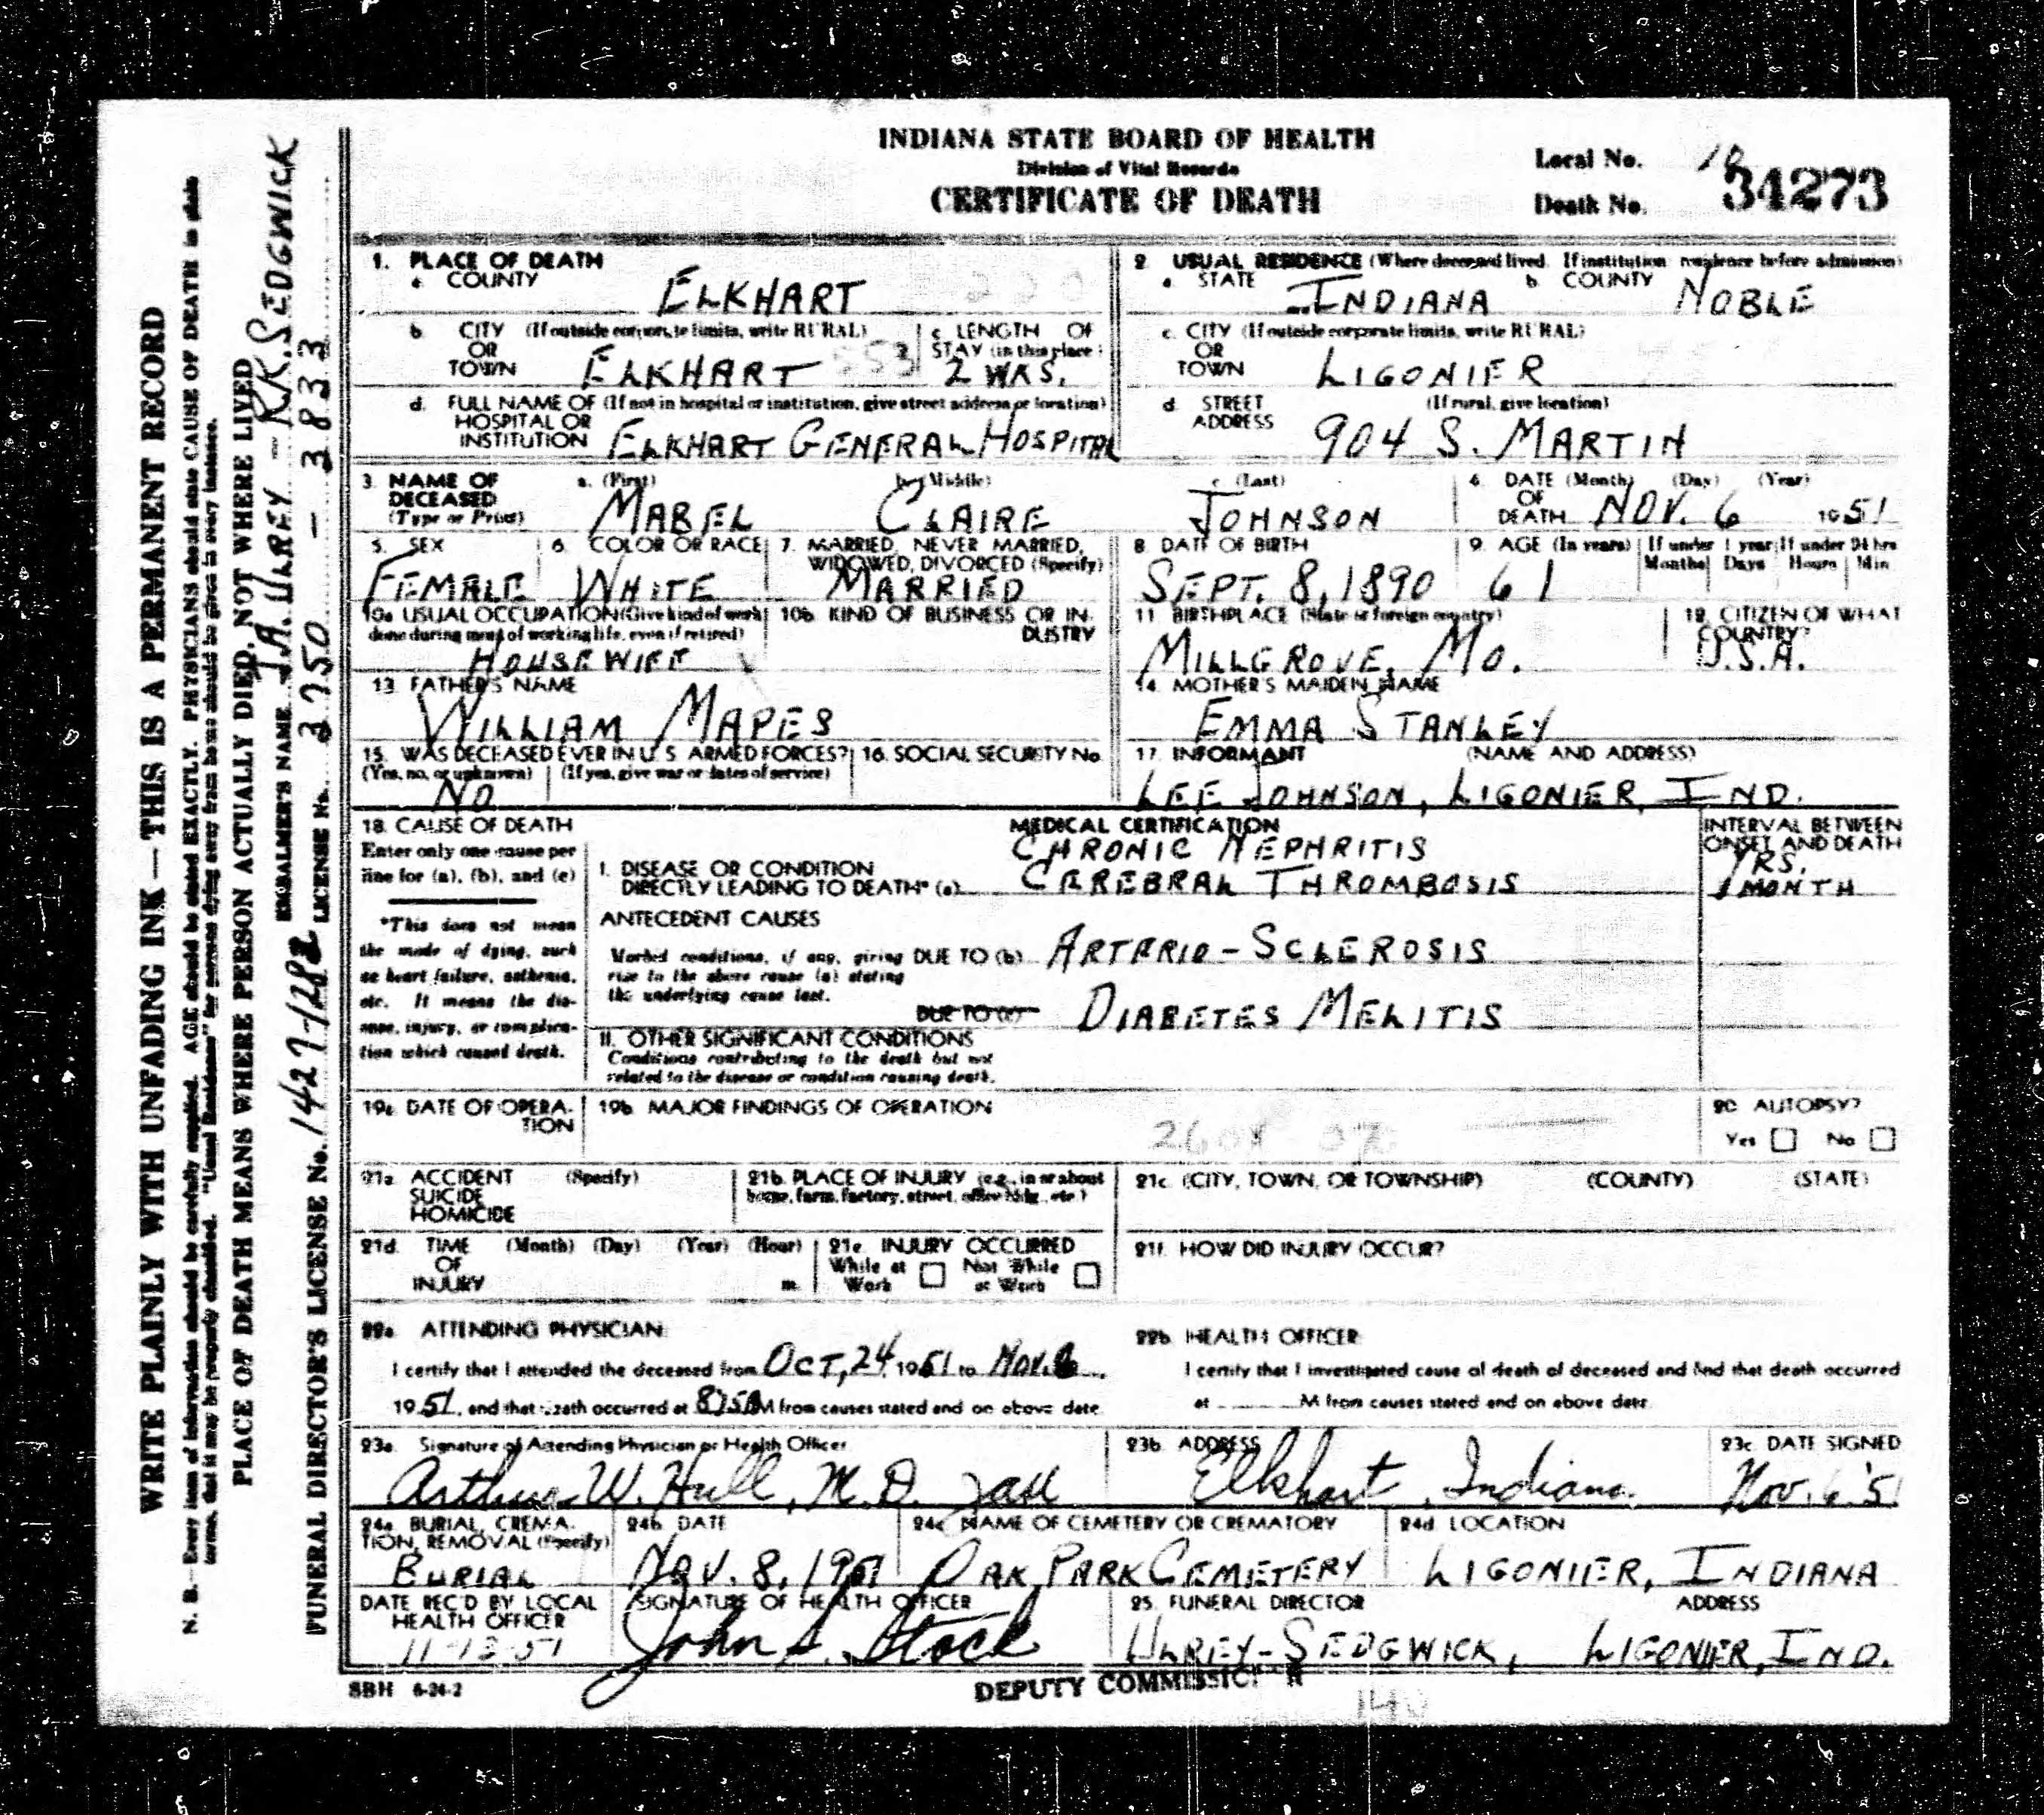 INDIANA STATE BOARD OF HEALTH
Division of Vital Records
CERTIFICATE OF DEATH
Local No. 18
Death No. 34273
WRITE PLAINLY WITH UNFADING INK—THIS IS A PERMANENT RECORD
N. B.—Every item of information should be carefully supplied. AGE should be stated EXACTLY. PHYSICIANS should state CAUSE OF DEATH in plain
terms, that it may be properly classified. "Usual Residence" for persons dying away from home should be given in every instance.
PLACE OF DEATH MEANS WHERE PERSON ACTUALLY DIED, NOT WHERE LIVED
EMBALMER'S NAME J.A. ULREY - R.K. SEDGWICK
FUNERAL DIRECTOR'S LICENSE No. 1427-1282 LICENSE No. 3750 - 3833
1. PLACE OF DEATH
a. COUNTY ELKHART
220
b. CITY (If outside corporate limits, write RURAL)
OR
TOWN ELKHART
c. LENGTH OF
STAY (in this place)
2 WKS.
d. FULL NAME OF (If not in hospital or institution, give street address or location)
HOSPITAL OR
INSTITUTION ELKHART GENERAL HOSPITAL
2. USUAL RESIDENCE (Where deceased lived. If institution: residence before admission)
a. STATE INDIANA b. COUNTY NOBLE
c. CITY (If outside corporate limits, write RURAL)
OR
TOWN LIGONIER
d. STREET (If rural, give location)
ADDRESS 904 S. MARTIN
3. NAME OF DECEASED (Type or Print)
a. (First) b. (Middle) c. (Last)
MABEL CLAIRE JOHNSON
4. DATE (Month) (Day) (Year)
OF
DEATH NOV. 6 1951
5. SEX 6. COLOR OR RACE 7. MARRIED, NEVER MARRIED,
WIDOWED, DIVORCED (Specify)
FEMALE WHITE MARRIED
8. DATE OF BIRTH 9. AGE (In years) If under 1 year If under 24 hrs
Months Days Hours Min
SEPT. 8, 1890 61
10a USUAL OCCUPATION (Give kind of work
done during most of working life, even if retired)
HOUSEWIFE
10b. KIND OF BUSINESS OR IN-
DUSTRY
11 BIRTHPLACE (State or foreign country)
MILLGROVE, MO.
12. CITIZEN OF WHAT
COUNTRY?
U.S.A.
13. FATHER'S NAME
WILLIAM MAPES
14. MOTHER'S MAIDEN NAME
EMMA STANLEY
15. WAS DECEASED EVER IN U. S. ARMED FORCES? 16. SOCIAL SECURITY No.
(Yes, no, or unknown) (If yes, give war or dates of service)
NO
17. INFORMANT (NAME AND ADDRESS)
LEE JOHNSON, LIGONIER, IND.
18. CAUSE OF DEATH
Enter only one cause per
line for (a), (b), and (c)
*This does not mean
the mode of dying, such
as heart failure, asthenia,
etc. It means the dis-
ease, injury, or complica-
tion which caused death.
MEDICAL CERTIFICATION
CHRONIC NEPHRITIS
I. DISEASE OR CONDITION
DIRECTLY LEADING TO DEATH* (a) CEREBRAL THROMBOSIS
INTERVAL BETWEEN
ONSET AND DEATH
YRS.
1 MONTH
ANTECEDENT CAUSES
Morbid conditions, if any, giving
rise to the above cause (a) stating
the underlying cause last.
DUE TO (b) ARTERIO-SCLEROSIS
DUE TO (c) DIABETES MELITIS
II. OTHER SIGNIFICANT CONDITIONS
Conditions contributing to the death but not
related to the disease or condition causing death.
19a. DATE OF OPERA-
TION
19b. MAJOR FINDINGS OF OPERATION
260X
20. AUTOPSY?
Yes No
21a. ACCIDENT (Specify)
SUICIDE
HOMICIDE
21b. PLACE OF INJURY (e.g., in or about
home, farm, factory, street, office bldg., etc.)
21c. (CITY, TOWN, OR TOWNSHIP) (COUNTY) (STATE)
21d. TIME (Month) (Day) (Year) (Hour)
OF
INJURY m.
21e. INJURY OCCURRED
While at Work Not While at Work
21f. HOW DID INJURY OCCUR?
22a. ATTENDING PHYSICIAN:
I certify that I attended the deceased from OCT, 24, 1951 to NOV. 6,
1951, and that death occurred at 8:15AM from causes stated and on above date.
22b. HEALTH OFFICER:
I certify that I investigated cause of death of deceased and find that death occurred
at M from causes stated and on above date.
23a. Signature of Attending Physician or Health Officer
Arthur W. Hull, M.D.
23b. ADDRESS
Elkhart, Indiana.
23c. DATE SIGNED
Nov. 6 '51
24a. BURIAL, CREMA-
TION, REMOVAL (Specify)
BURIAL
24b. DATE
NOV. 8, 1951
24c. NAME OF CEMETERY OR CREMATORY
OAK PARK CEMETERY
24d. LOCATION
LIGONIER, INDIANA
DATE REC'D BY LOCAL
HEALTH OFFICER
11-13-51
SIGNATURE OF HEALTH OFFICER
John S. Stock
DEPUTY COMMISSIONER
25. FUNERAL DIRECTOR ADDRESS
ULREY-SEDGWICK, LIGONIER, IND.
SBH 6-24-2
140